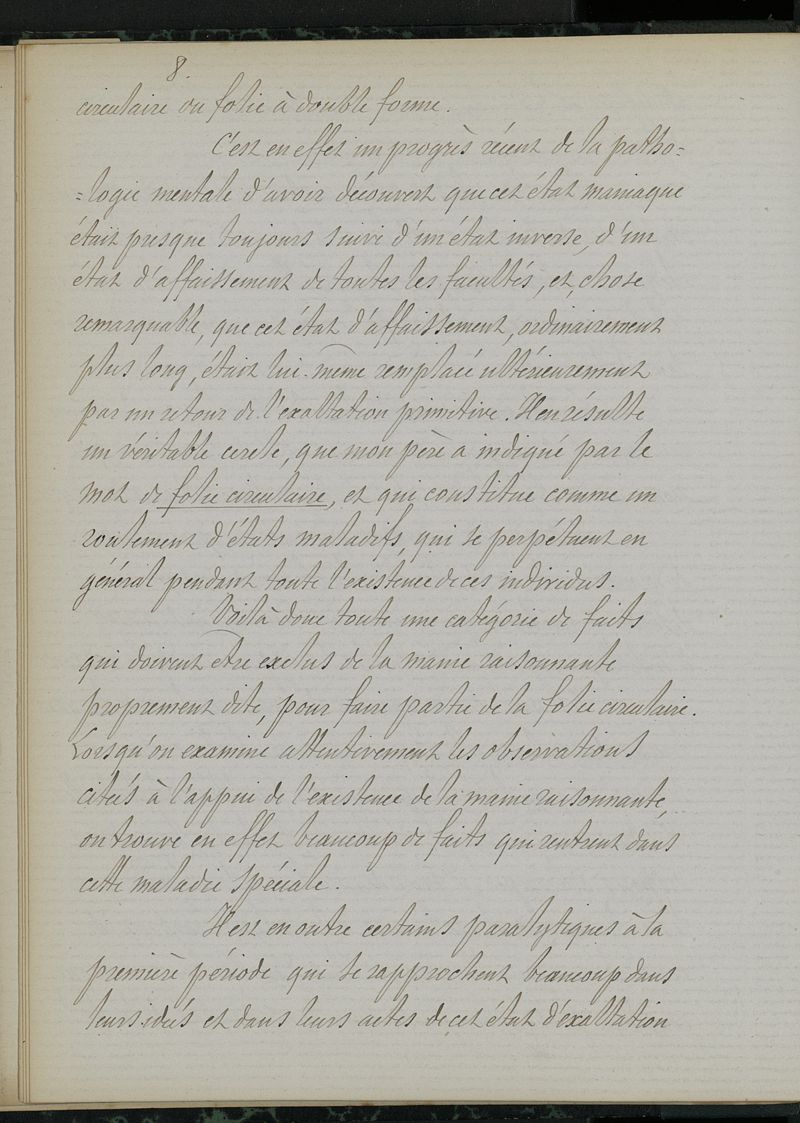 8.
circulaire ou folie à double forme.
C'est en effet un progrès récent de la patho=
=logie mentale d'avoir découvert que cet état maniaque
était presque toujours suivi d'un état inverse, d'un
état d'affaissement de toutes les facultés, et, chose
remarquable, que cet état d'affaissement, ordinairement
plus long, était lui-même remplacé ultérieurement
par un retour de l'exaltation primitive. Il en résulte
un véritable cercle, que mon père a indiqué par le
mot de folie circulaire, et qui constitue comme un
roulement d'états maladifs, qui se perpétuent en
général pendant toute l'existence de ces individus.
Voilà donc toute une catégorie de faits
qui doivent être exclus de la manie raisonnante
proprement dite, pour faire partie de la folie circulaire.
Lorsqu'on examine attentivement les observations
citées à l'appui de l'existence de la manie raisonnante,
on trouve en effet beaucoup de faits qui rentrent dans
cette maladie spéciale.
Il est en outre certains paralytiques à la
première période qui se rapprochent beaucoup dans
leurs idées et dans leurs actes de cet état d'exaltation